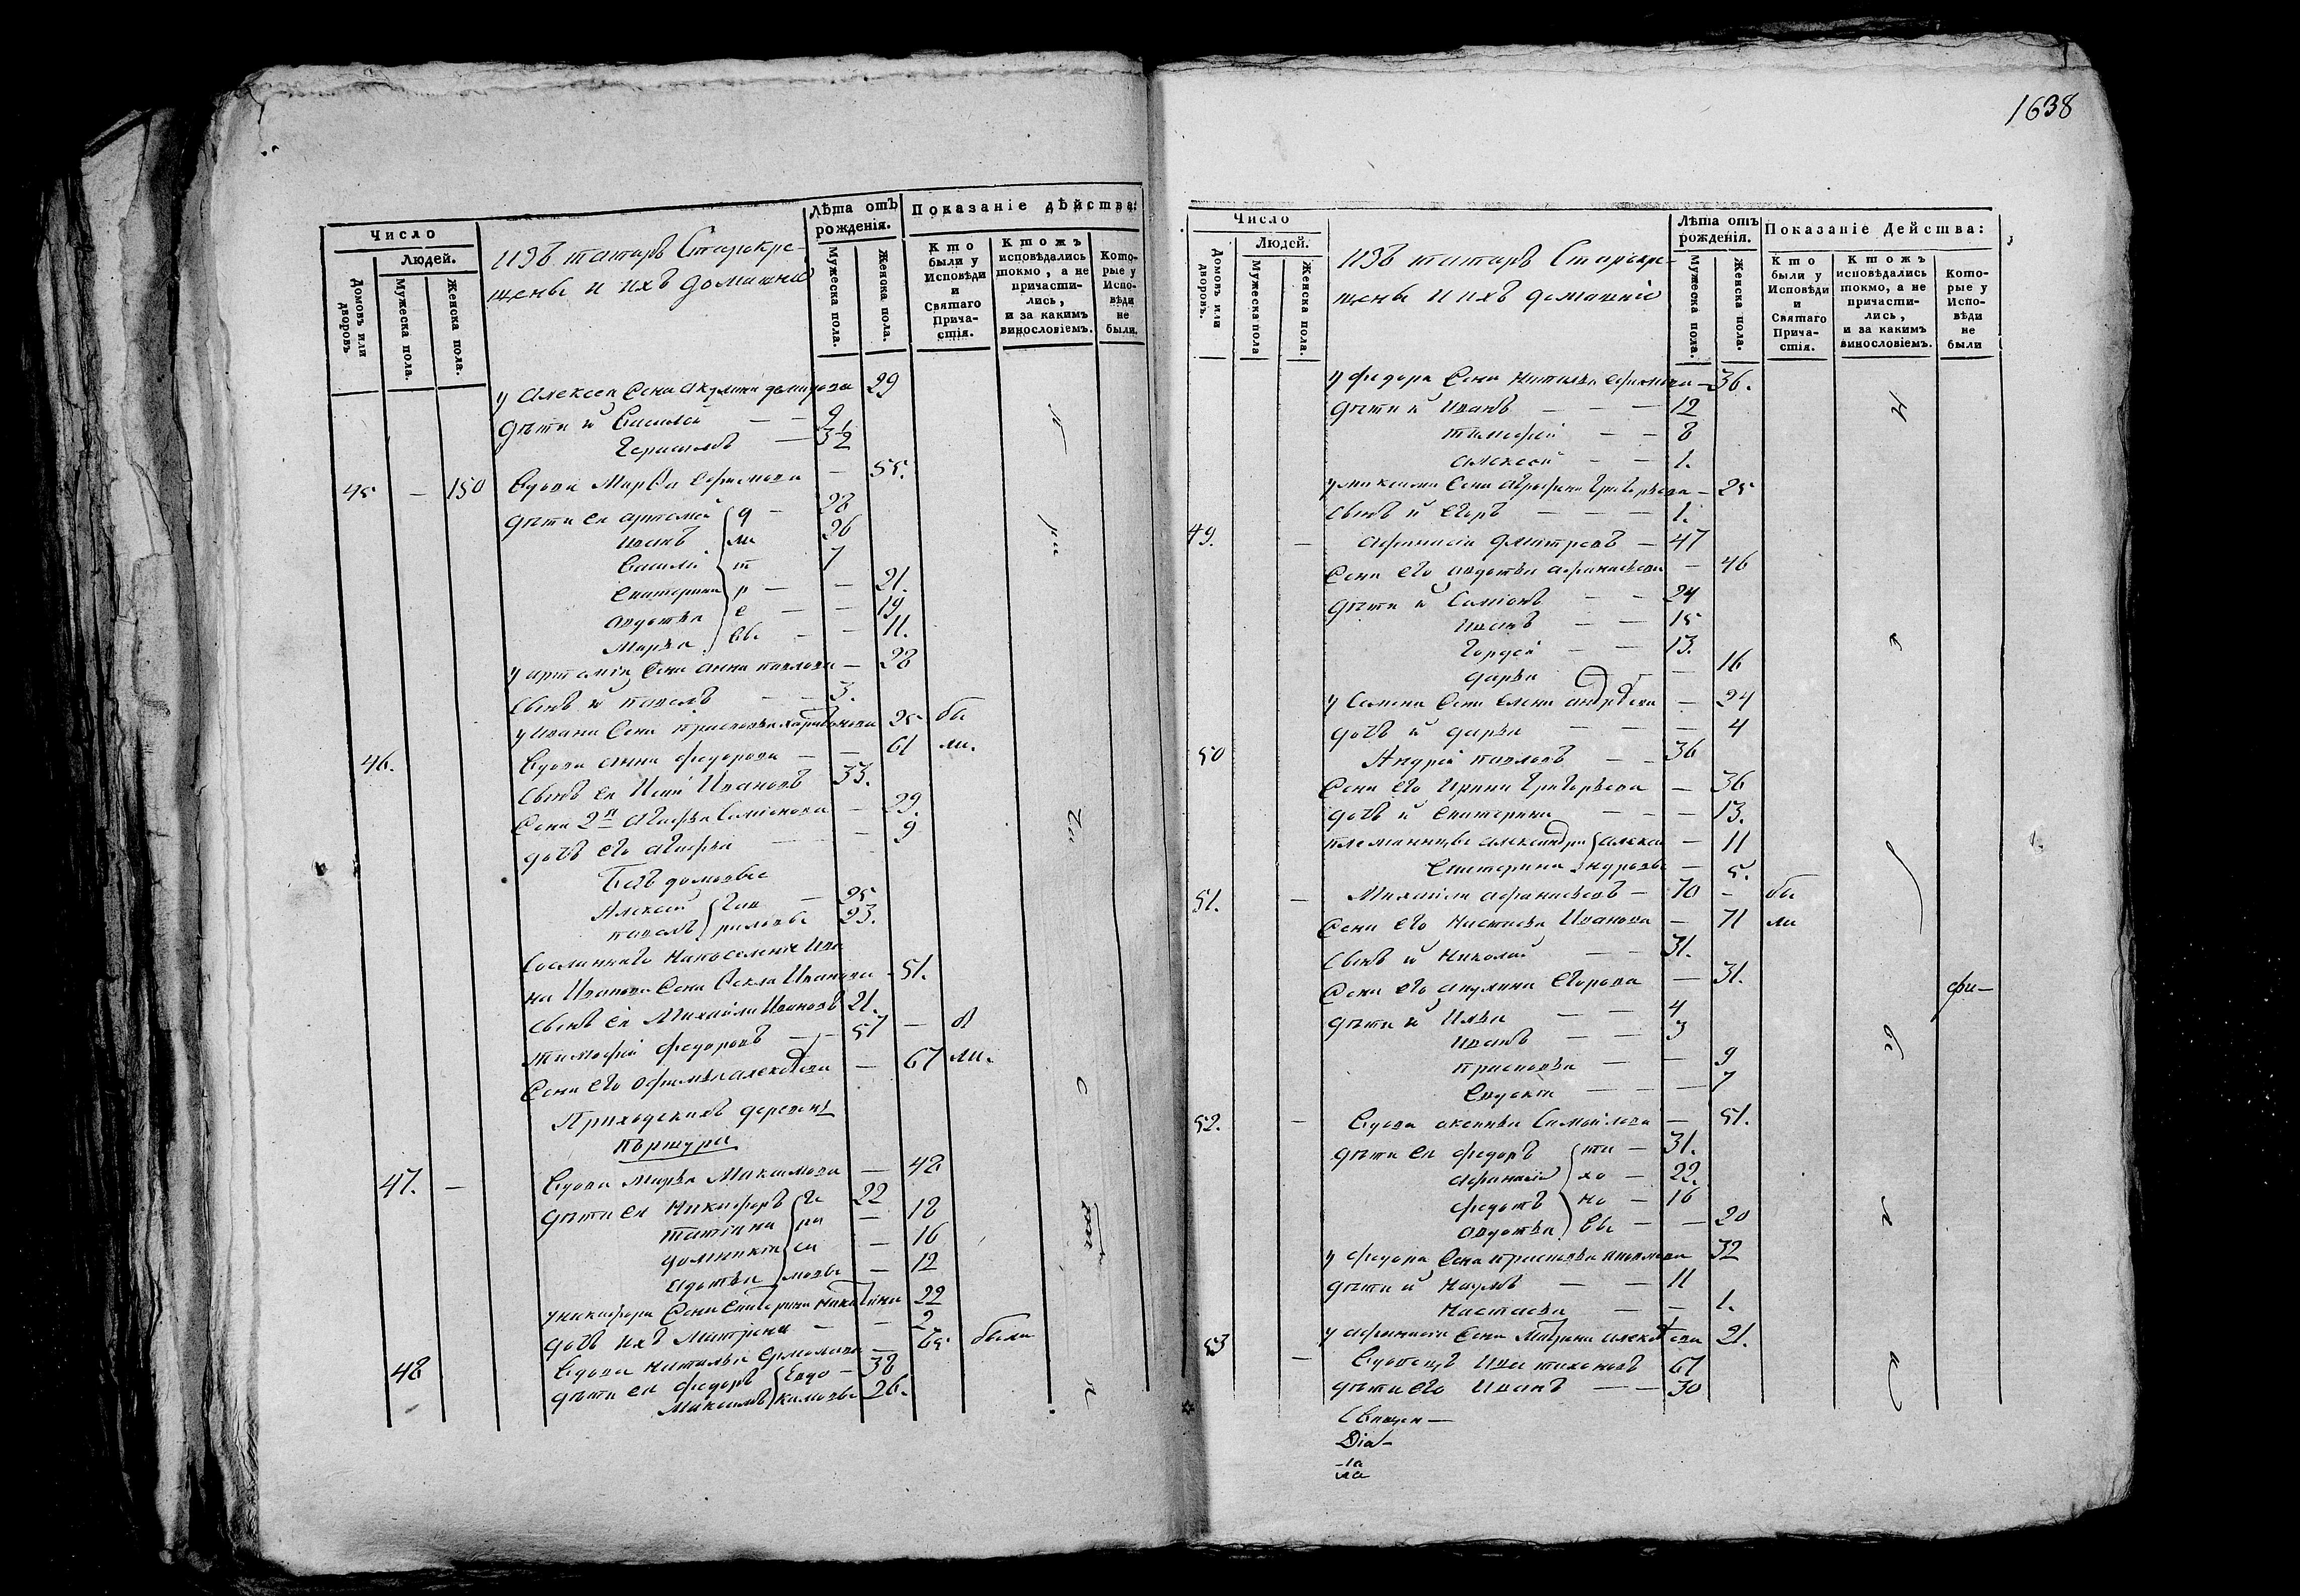 Число
Людей.
Домовъ или дворовъ
Мужеска пола.
Женска пола.
изъ татаръ Старокре-
щены и ихъ домашніе
Лѣта отъ рожденія.
Мужеска пола.
Женска пола.
Показаніе дѣйства:
Кто были у Исповѣди и Святаго Причастія.
Ктожъ исповѣдались токмо, а не причастились, и за какимъ винословіемъ.
Которые у Исповѣди не были.
у Алексея жена Акулина 29
дѣти и Василей — — 9
Герасимъ — 3 1/2
45 — 150 вдова Марѳа Ефимова — 55.
дѣти ея Артемей д — 28
Иванъ ми 26
Василій т 7
Екатерина р — — 21.
Авдотья е — — 19
Марья вы — — 11.
у Артемія жена Анна Павлова — 28
сынъ и Павелъ — — 3.
у Ивана жена Прасковья Харитонова 25 бы
46. вдова Анна Федорова — — 61 ли.
сынъ ея Иванъ Ивановъ 33.
жена 2я Агафья Семіонова — 29.
дочь его Агафья — — 9
Бездомовые
Алексей Гав — 25
Павелъ риловы 23.
Сосланнаго на поселеніе Ива
на Иванова жена Ѳекла Иванова — 51.
сынъ ея Михайла Ивановъ 21.
Тимофей Федоровъ — — 57 — бы
жена его Офимья Алексѣева — 67 ли.
Приходскихъ деревень
Пършуры
47. — вдова Марья Максимова — 48
дѣти ея Никифоръ Ге 22
Татіана ра — 18
Домникія си — 16
Авдотья мовы — 12
у Никифора жена Катерина Никитина 22
дочь ихъ Матрена — — 2
48 вдова Наталья Ермолаева — 65 были
дѣти ея Федоръ Евдо — 38
Максимъ кимовы 26.
1638
Число
Людей.
Домовъ или дворовъ.
Мужеска пола
Женска пола.
изъ татаръ Старокре-
щены и ихъ домашніе
Лѣта отъ рожденія.
Мужеска пола.
Женска пола.
Показаніе Дейсшва:
Кто были у Исповѣди и Святаго Причастія.
Ктожъ исповѣдались токмо, а не причастились, и за какимъ винословіемъ.
Которые у Исповѣди не были
у Федора жена Наталья Ефимова — 36.
дѣти и Иванъ — — — 12
Тимофей — — 8
Алексей — — 1.
у Максима жена Аграфина Григорьева — 25
сынъ и Егоръ — — — 1.
49. — Афанасій Дмитревъ — 47
жена его Авдотья Афанасьева — 46
дѣти и Семіонъ — — 24
Иванъ — — 15
Гордей — — 13.
Дарья — 16
у Семена жена Елена Андрѣева — 24
дочь и Дарья — — — 4
50 Андрей Павловъ — — 36
жена его Ирина Григорьева — 36
дочь и Екатерина — — — 13.
племянницы Александра Алекса — 11
Екатерина ндровы — 5.
51. — Михайла Афанасьевъ — 70 — бы
жена его Настасья Иванова — 71 ли
сынъ и Николай — — 31.
жена его Акулина Егорова — 31.
дѣти и Илья — — 4
Иванъ — — 3
Прасковья — — 9
Евдокія — — — 7
52. — вдова Аксинья Самойлова — 51.
дѣти ея Федоръ ти — 31.
Афанасій хо — 22.
Федотъ но — 16
Авдотья вы — — 20
у Федора жена Прасковья 32
дѣти и Наумъ — — 11
Настасья — — 1.
у Афанасія жена Матрена Алексѣева 21.
53 — вдовецъ Ива Тихоновъ 67
дѣти его Иванъ — — 30
Священ —
Dia —